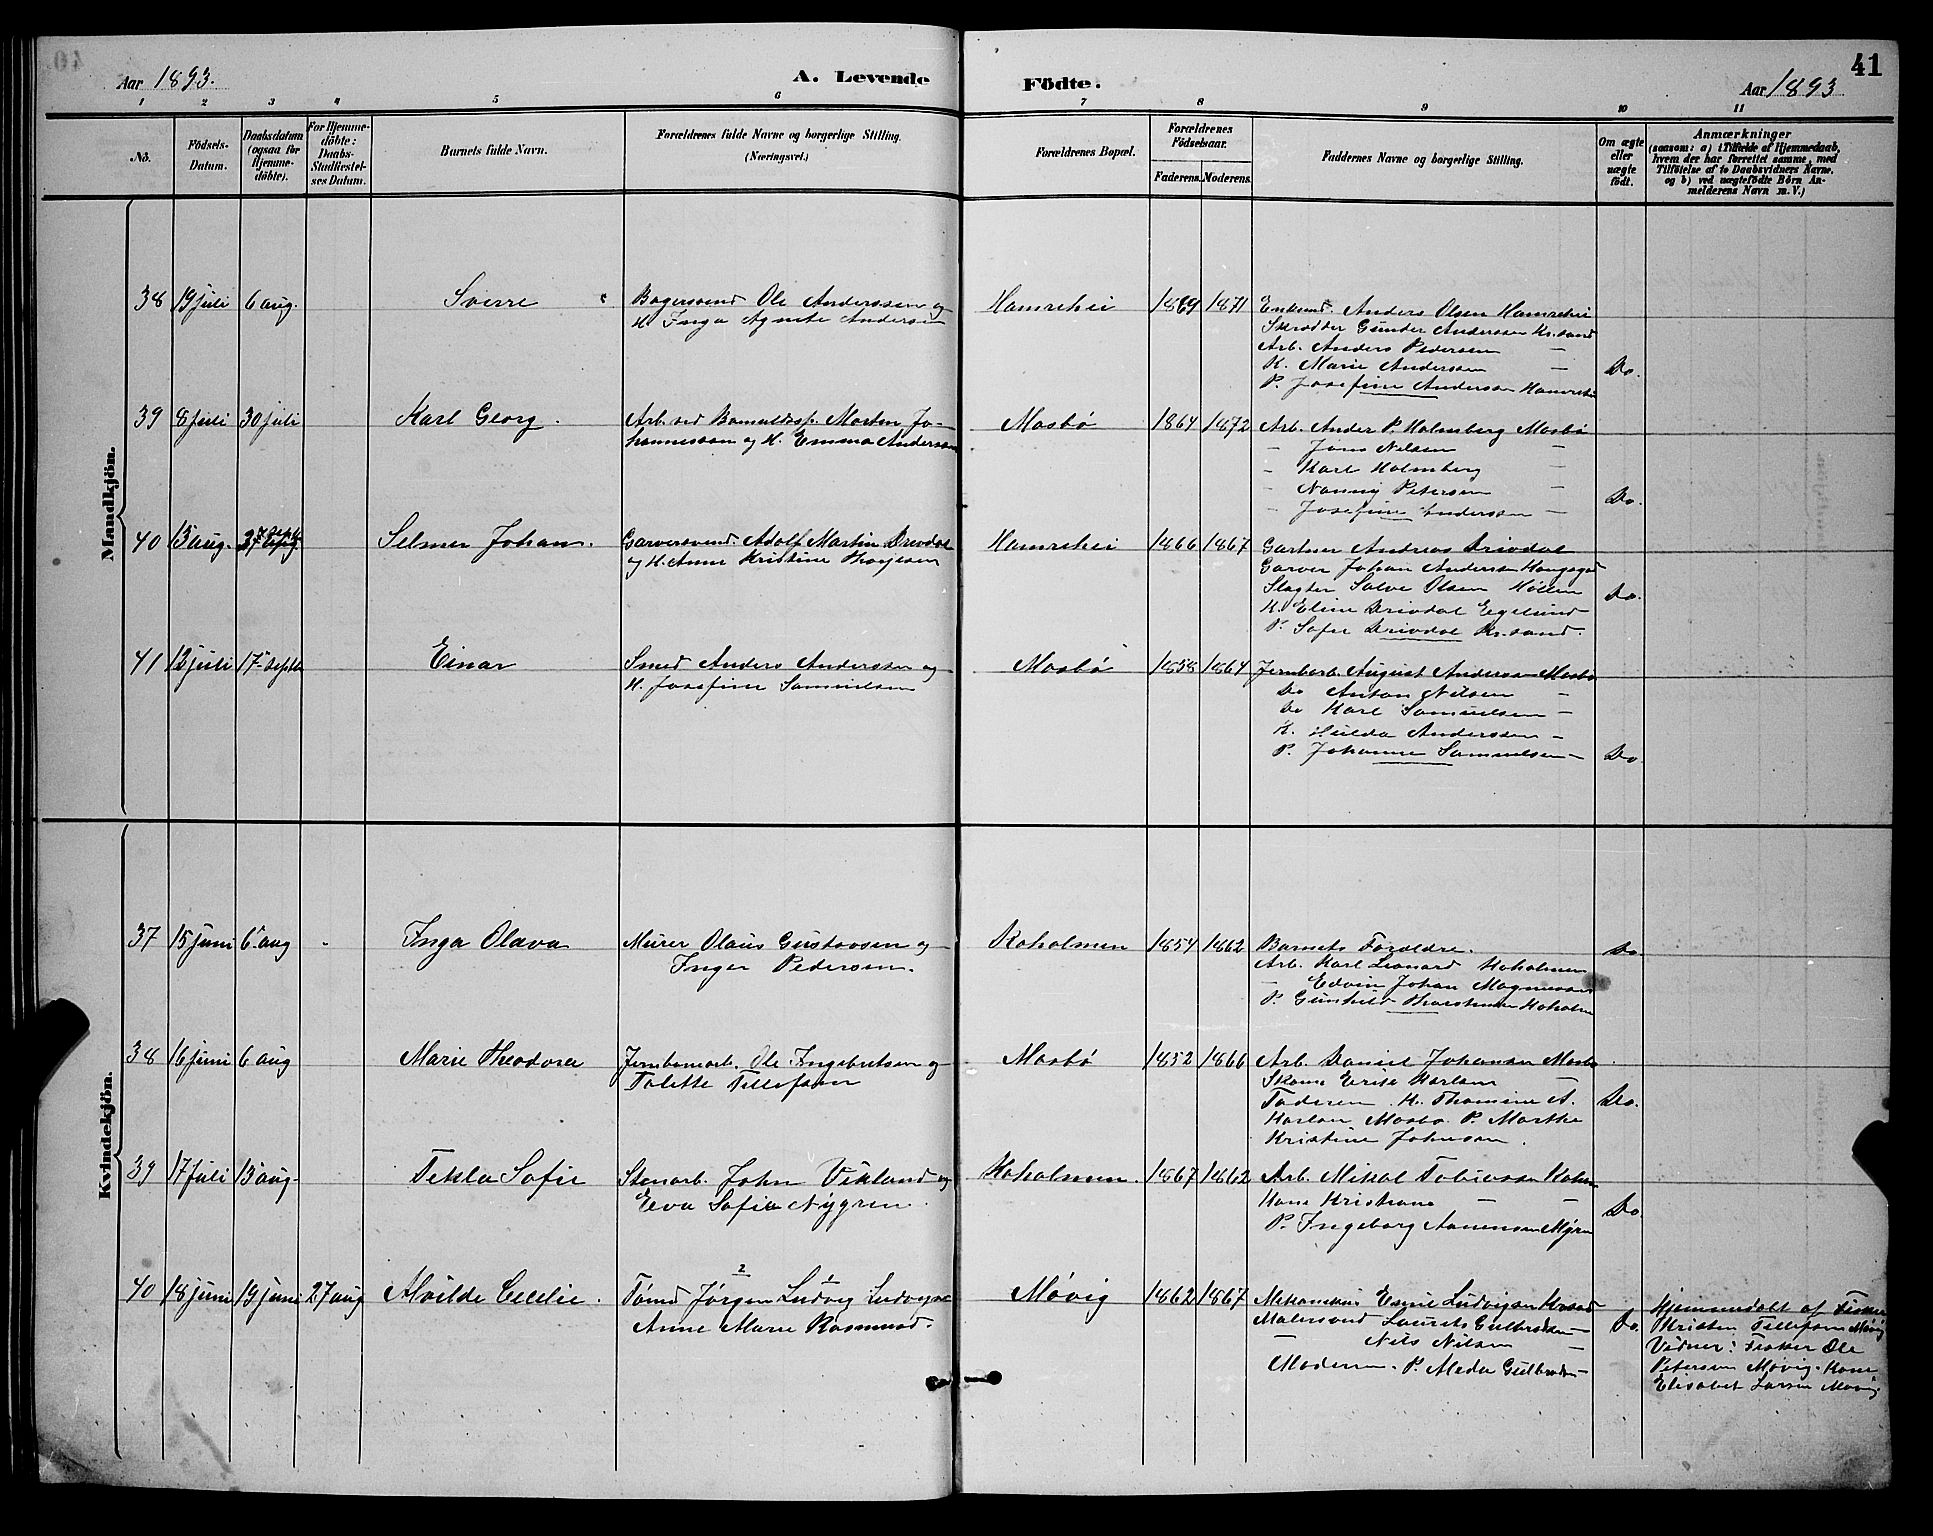 Aar 1893.
A. Levende Födte.
Aar 1893
41
1 2 3 4 5 6 7 8 9 10 11
No.
Födsels-
Datum.
Daabsdatum
(ogsaa for
Hjemme-
döbte).
For Hjemme-
döbte:
Daabs-
Stadfæstel-
ses Datum.
Barnets fulde Navn.
Forældrenes fulde Navne og borgerlige Stilling.
(Næringsvei.)
Forældrenes Bopæl.
Forældrenes
Födselsaar.
Faderens. Moderens.
Faddernes Navne og borgerlige Stilling.
Om ægte
eller
uægte
födt.
Anmærkninger
(saasom: a) i Tilfælde af Hjemmedaab,
hvem der har forrettet samme, med
Tilföielse af to Daabsvidners Navne,
og b) ved uægtefödte Börn An-
melderens Navn m. V.)
Mandkjön.
38 19 juli 6 aug. Sverre Bagersvend Ole Anderssen og
H. Inga Agnete Andersen
Hamrehei 1869 1871
Anders Olsen Hamrehei
Skrædder Gunder Anderssen Kr.sand
Arb. Anders Pedersen —
K. Marie Anderssen —
P. Josefine Andersen Hamrehei
Do.
39 8 juli 30 juli Karl Georg. Arb. ved Bomuldssp. Morten Jo-
hannessen og H. Emma Anderssen
Mosbø 1864 1872
Arb. Ander P. Holmberg Mosbø
- Jons Nilsen —
- Karl Holmberg —
- Nanny Petersen —
- Josefine Anderssen —
Do.
40 13 aug. Selmer Johan. Garversvend. Adolf Martin Drivdal
og H. Anne Kristine
Hamrehei 1866 1867
Gartner Andreas Drivdal
Garver Johan Andersen
Slagter Salve Olsen Møllen
K. Eline Drivdal Egelund
P. Sofie Drivdal Kr.sand.
Do.
41 12 juli 17 septb Einar Smed Anders Anderssen og
H. Josefine Samuelsen
Mosbø 1858 1864
Jernbarb. August Anderssen Mosbø
Do Anton Nilsen —
Do Karl Samuelsen —
K. Hulda Anderssen —
P. Johanne Samuelsen —
Do.
Kvindekjön.
37 15 juni 6 aug Inga Olava Murer Olaus Gustavsen og
Inger Pedersen.
Koholmen 1854 1862
Barnets Forældre.
Arb. Karl Leonard Koholmen
- Edvin Johan Magnussen
P. Gunhild Koholm
Do.
38 16 juni 6 aug Marie Theodora Jernbanearb. Ole Ingebretsen og
Tolette Tellefsen
Mosbø 1852 1866
Arb. Daniel Johansen Mosbø
Erik Karlsen —
Faderen. K. Thomine A.
Karlsen Mosbø. P. Marthe
Kristine Johnsen.
Do.
39 17 juli 13 aug. Tekla Sofie Stenarb. John Vikland og
Eva Sofia Nygren.
Koholmen. 1867 1862
Arb. Mikal Tobiassen Kohom
Kone Kristiane — —
P. Ingeborg Aanensen Myren
Do.
40 18 juni 19 juni 27 aug Alvilde Cecelie. Tømd Jørgen Ludvig Ludvigsen
2 1
Anne Marie Rasmusd.
Møvig 1862 1867
Mekanikus Emil Ludvigsen Krsand
Malersvend Laurits Gulbrandsen —
Nils Nilsen —
Moderen. P. Meda Gulbrandsen —
Do.
Hjemmedøbt af Fisker
Kristen Tellefsen Møvig
Vidner: Fisker Ole
Petersen Møvig. Kone
Elisabet Larsen Møvig